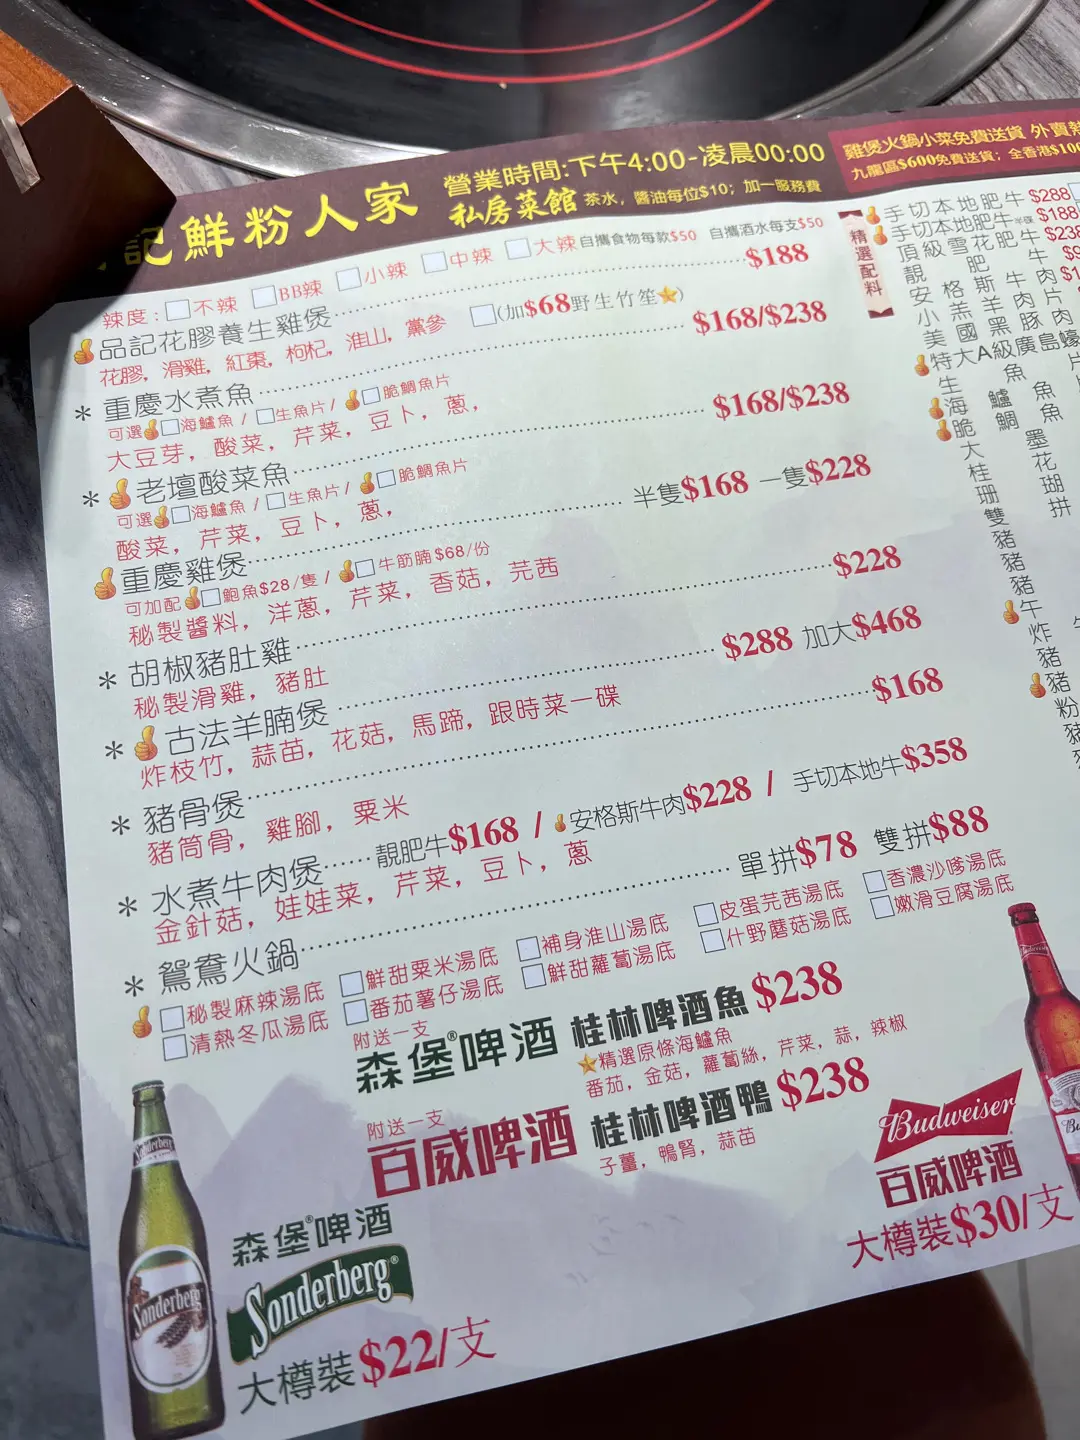 記鮮粉人家
營業時間:下午4:00-凌晨00:00
私房菜館 茶水，醬油每位$10；加一服務費
雞煲火鍋小菜免費送貨 外賣熱
九龍區$600免費送貨；全香港$100
辣度: 不辣 BB辣 小辣 中辣 大辣 自攜食物每款$50 自攜酒水每支$50
品記花膠養生雞煲 $188
花膠，滑雞，紅棗，枸杞，淮山，黨參 (加$68野生竹笙)
* 重慶水煮魚 $168/$238
可選 海鱸魚 / 生魚片 / 脆鯛魚片
大豆芽，酸菜，芹菜，豆卜，蔥，
* 老壇酸菜魚 $168/$238
可選 海鱸魚 / 生魚片 / 脆鯛魚片
酸菜，芹菜，豆卜，蔥，
重慶雞煲 半隻$168 一隻$228
可加配 鮑魚$28/隻 / 牛筋腩$68/份
秘製醬料，洋蔥，芹菜，香菇，芫茜
* 胡椒豬肚雞 $228
秘製滑雞，豬肚
* 古法羊腩煲 $288 加大$468
炸枝竹，蒜苗，花菇，馬蹄，跟時菜一碟
* 豬骨煲 $168
豬筒骨，雞腳，粟米
* 水煮牛肉煲 靚肥牛$168 / 安格斯牛肉$228 / 手切本地牛$358
金針菇，娃娃菜，芹菜，豆卜，蔥
* 鴛鴦火鍋 單拼$78 雙拼$88
秘製麻辣湯底 鮮甜粟米湯底 補身淮山湯底 皮蛋芫茜湯底 香濃沙嗲湯底
清熱冬瓜湯底 番茄薯仔湯底 鮮甜蘿蔔湯底 什野蘑菇湯底 嫩滑豆腐湯底
附送一支
森堡®啤酒 桂林啤酒魚 $238
精選原條海鱸魚
番茄，金菇，蘿蔔絲，芹菜，蒜，辣椒
附送一支
百威啤酒 桂林啤酒鴨 $238
子薑，鴨腎，蒜苗
森堡®啤酒
Sonderberg®
大樽裝$22/支
Sonderberg
Budweiser
百威啤酒
大樽裝$30/支
精選配料
手切本地肥牛 $288
手切本地肥牛 半碟 $188
頂級雪花肥牛 $238